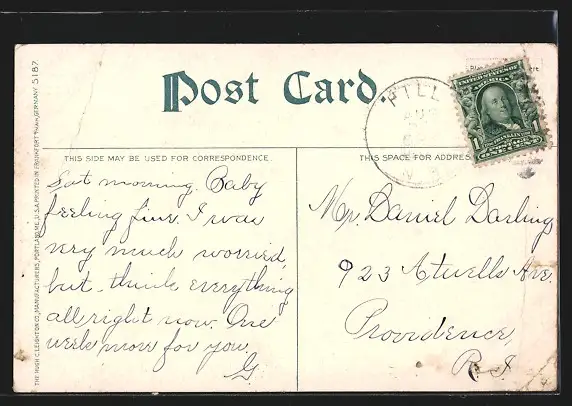 Post Card.
THIS SIDE MAY BE USED FOR CORRESPONDENCE.
THIS SPACE FOR ADDRESS
UNITED STATES OF AMERICA
1 FRANKLIN 1
POSTAGE
ONE CENT
Sat morning. Baby
feeling fine. I was
very much worried,
but think everything
all right now. One
week more for you.
G
Mr. Daniel Darling
923 Atwells Ave.
Providence,
R. I.
THE HUGH C. LEIGHTON CO., MANUFACTURERS, PORTLAND, ME., U.S.A. PRINTED IN FRANKFORT GERMANY 5187